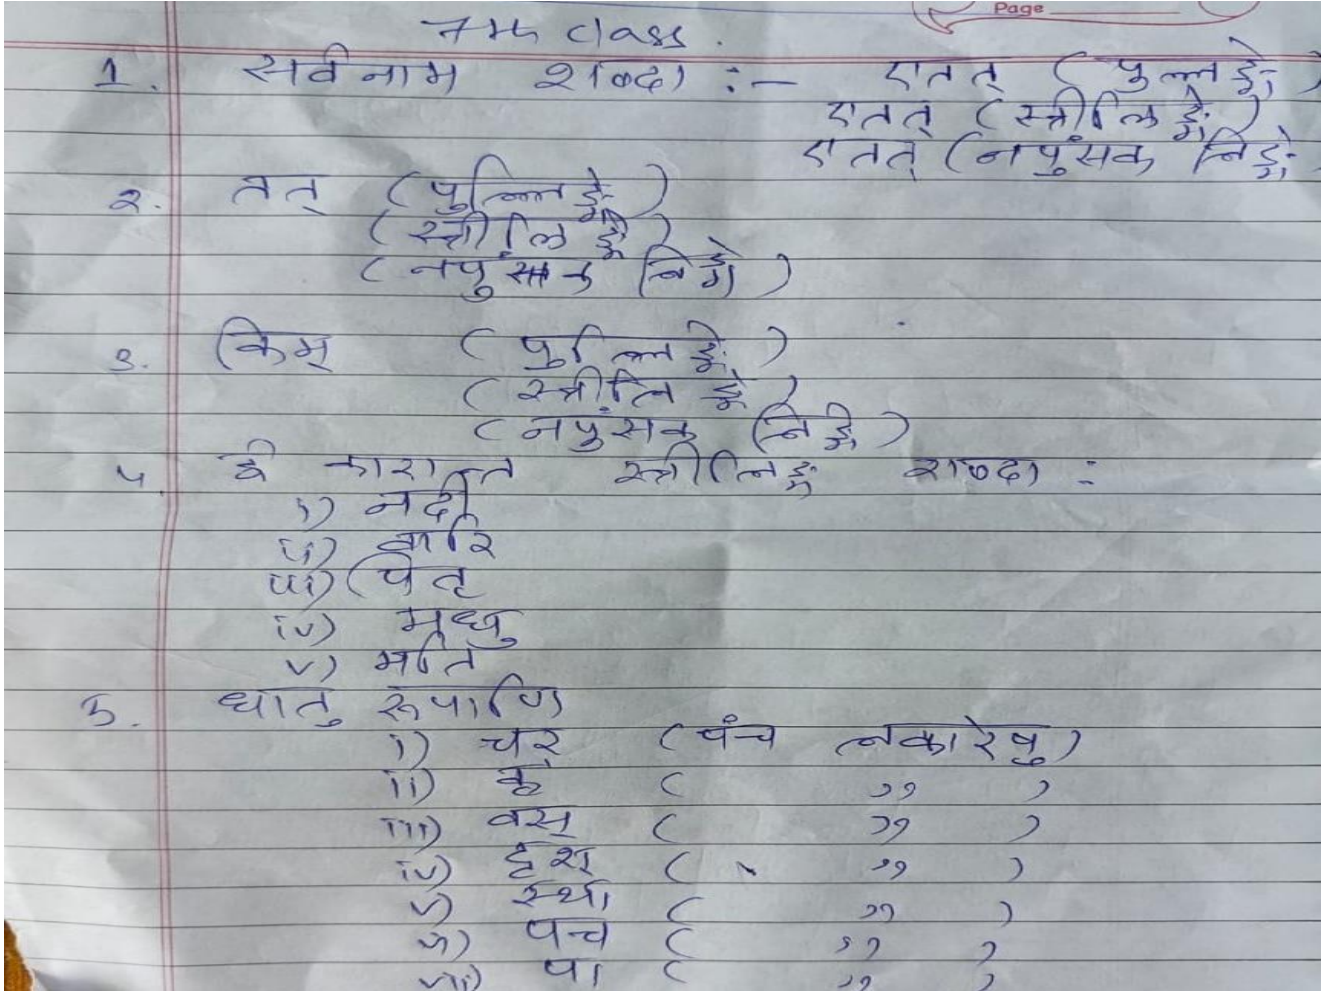 Page
7th class.
1. सर्वनाम शब्दा :- एतत् (पुल्लिङ्गे)
एतत् (स्त्रीलिङ्गे)
एतत् (नपुंसक लिङ्गे
2. तत् (पुल्लिङ्गे)
(स्त्रीलिङ्गे)
(नपुंसक लिङ्गे)
3. किम् (पुल्लिङ्गे)
(स्त्रीलिङ्गे)
(नपुंसक लिङ्गे)
4 ई कारान्त स्त्रीलिङ्ग शब्दा :
i) नदी
ii) वारि
iii) पितृ
iv) मधु
v) मति
5. धातु रूपाणि
i) चर (पंच लकारेषु)
ii) कृ ( ,, )
iii) वस् ( ,, )
iv) दृश ( ,, )
v) स्था ( ,, )
vi) पच ( ,, )
vii) पा ( ,, )